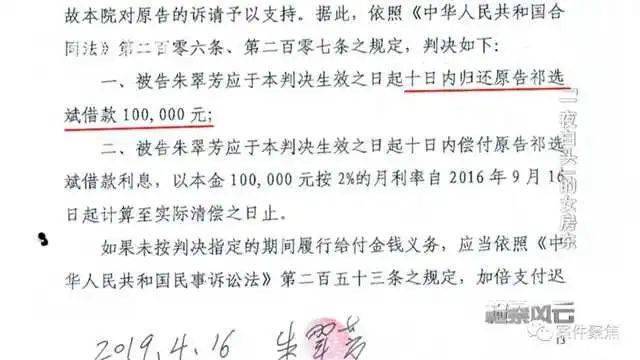 故本院对原告的诉请予以支持。据此，依照《中华人民共和国合
同法》第二百零六条、第二百零七条之规定，判决如下：
一、被告朱翠芳应于本判决生效之日起十日内归还原告祁选
斌借款 100,000 元；
二、被告朱翠芳应于本判决生效之日起十日内偿付原告祁选
斌借款利息，以本金 100,000 元按 2%的月利率自 2016 年 9 月 16
日起计算至实际清偿之日止。
如果未按判决指定的期间履行给付金钱义务，应当依照《中
华人民共和国民事诉讼法》第二百五十三条之规定，加倍支付迟
2019.4.16 朱翠芳
一夜白头的女房东
案件聚焦
13